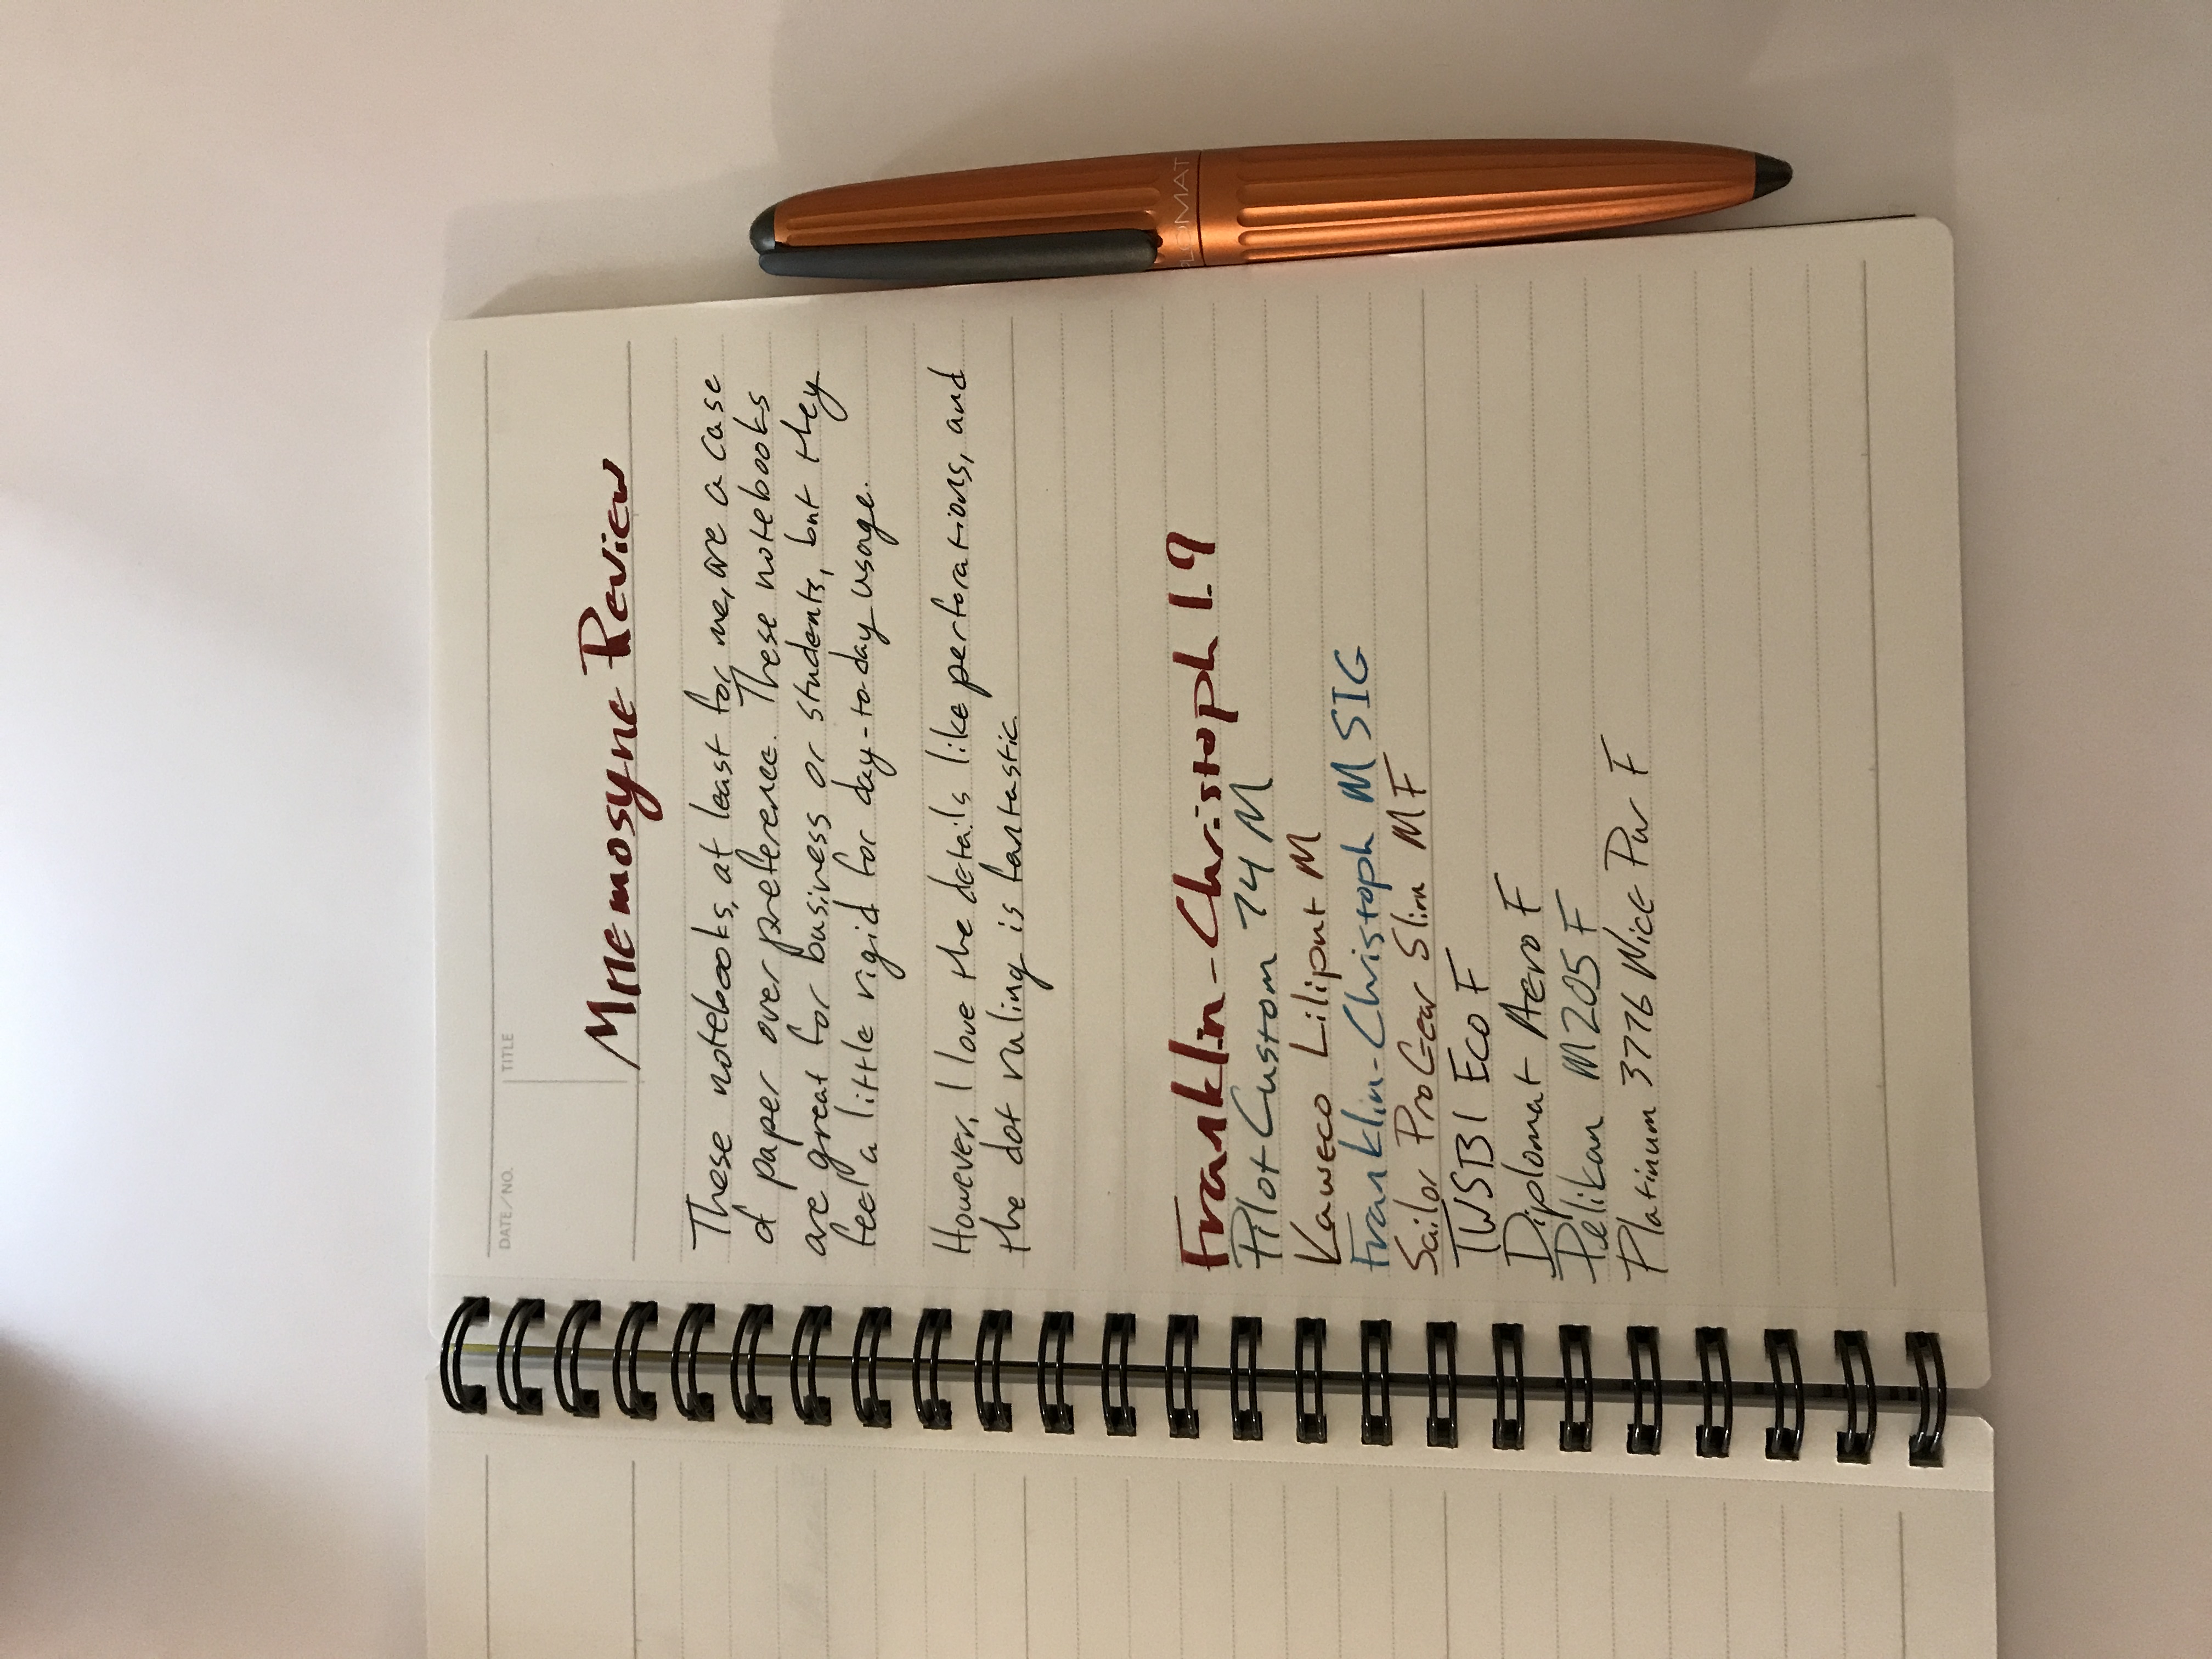 DATE/NO.
TITLE
Mnemosyne Review
These notebooks, at least for me, are a case
of paper over preference. These notebooks
are great for business or students, but they
feel a little rigid for day-to-day usage.
However, I love the details like perforations, and
the dot ruling is fantastic.
Franklin-Christoph 1.9
Pilot Custom 74 M
Kaweco Liliput M
Franklin-Christoph M SIG
Sailor ProGear Slim MF
TWSBI Eco F
Diplomat Aero F
Pelikan M205 F
Platinum 3776 Nice Pur F
PLOMAT